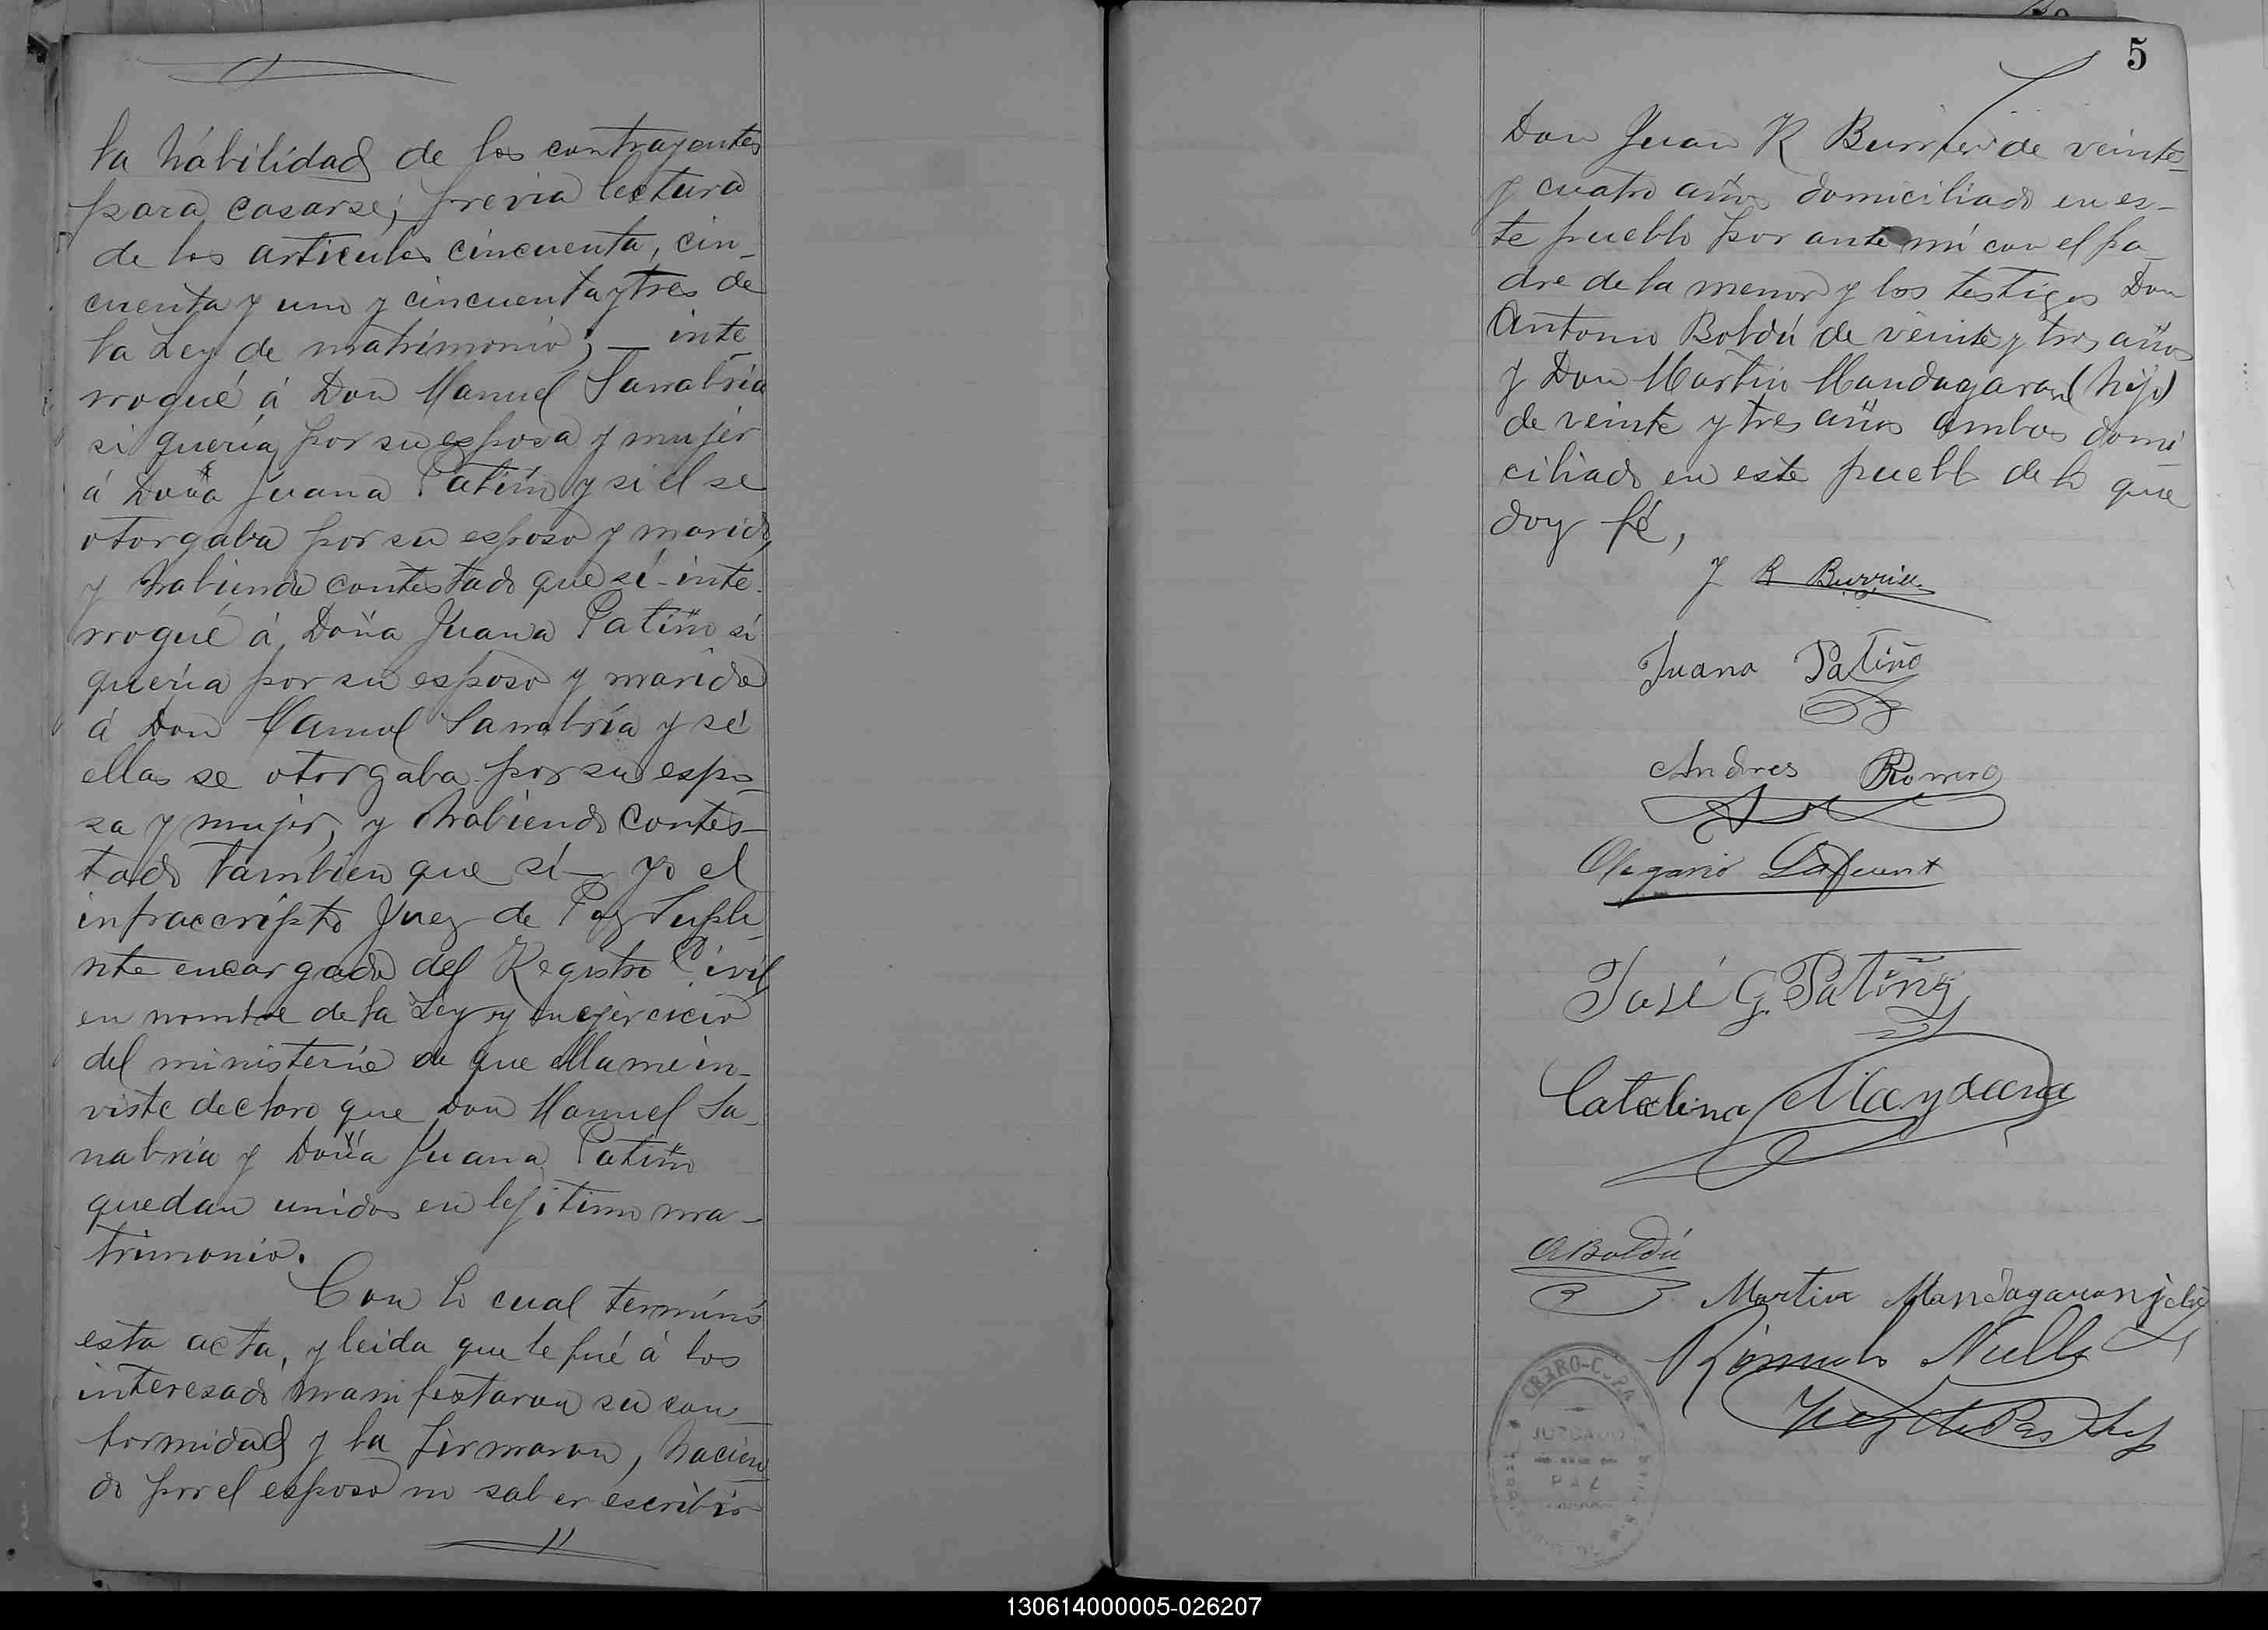 la hábilidad de los contrayentes
para casarse; previa lectura
de los articulos cincuenta, cin-
cuenta y uno y cincuenta y tres de
la Ley de matrimonio; - inte
rrogué á Don Manuel Sanabria
si queria por su esposa y mujer
á Doña Juana Patiño y si el se
otorgaba por su esposo y marido,
y habiendo contestado que sí - inte-
rrogué á Doña Juana Patiño si
queria por su esposo y marido
á Don Manuel Sanabria y sí
ellas se otorgaba por su espo-
sa y mujer, y habiendo contes-
tado tambien que sí - yo el
infraccripto Juez de Paz Suple
nte encargado del Registro Civil
en nombre de la Ley y en ejercicio
del ministerio de que ella me in-
viste declaro que Don Manuel Sa-
nabria y Doña Juana Patiño
quedan unidos en legitimo ma-
trimonio.
Con lo cual terminó
esta acta, y leida que le fué á los
interesado manifestaron su con-
formidad y la firmaron, hacien
do por el esposo no saber escribir
5
Don Juan R de veinte
y cuatro años domiciliado en es-
te pueblo por ante mí con el pa-
dre de la menor y los testigos Don
Antonio Boldú de veinte y tres años
y Don Martin Mandagaran (hijo)
de veinte y tres años ambos domi
ciliado en este pueblo de lo que
doy fé,
J R
Juana Patiño
Andres Romero
Olegario Lafuente
José G. Patiño
Catalina Maydana
A Boldú
Martin Mandagaran
Rómulo
Juez de Paz Sup
CERRO-CORÁ
JUZGADO
PAZ
130614000005-026207